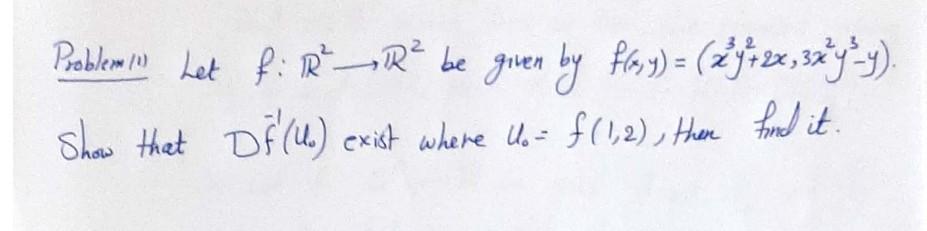 Problem(1) Let f: ℝ² → ℝ² be given by f(x,y) = (x³y²+2x, 3x²y³-y).
Show that Df⁻¹(U₀) exist where U₀ = f(1,2), then find it.